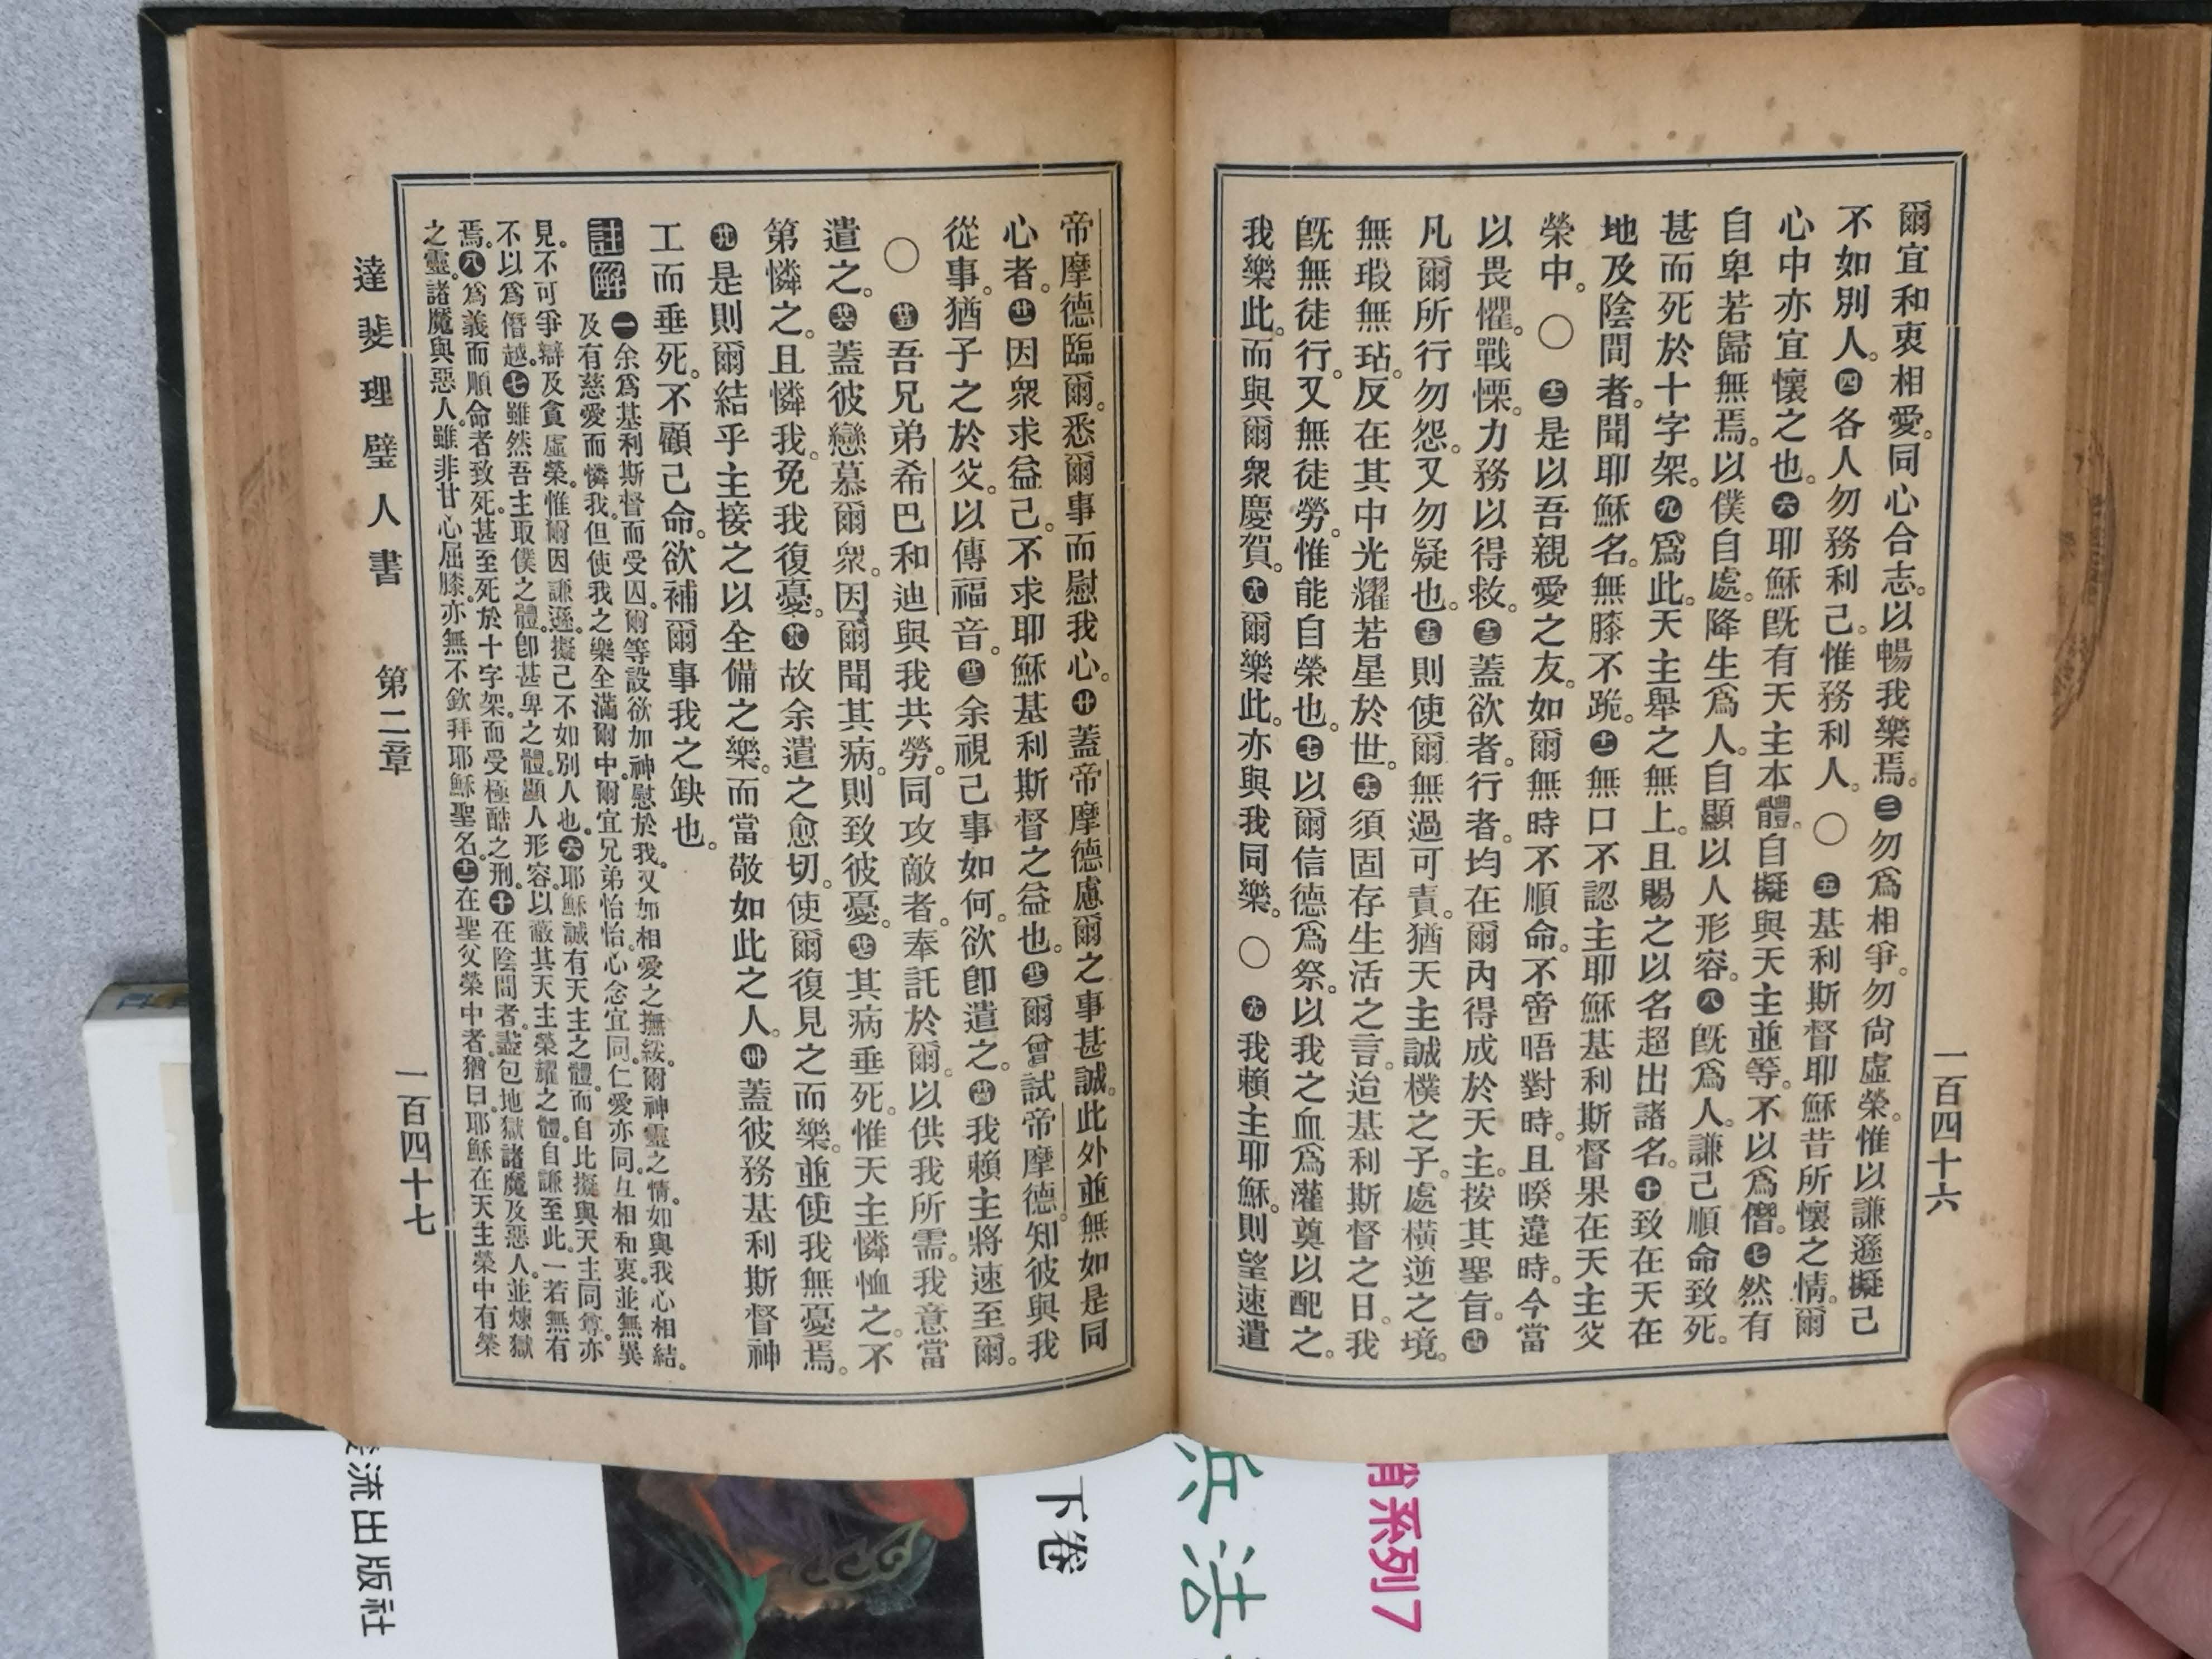 爾宜和衷相愛。同心合志。以暢我樂焉。㊂勿爲相爭。勿尙虛榮。惟以謙遜擬己
不如別人。㊃各人勿務利己。惟務利人。〇㊄基利斯督耶穌昔所懷之情。爾
心中亦宜懷之也。㊅耶穌旣有天主本體。自擬與天主並等。不以爲僭。㊆然有
自卑若歸無焉。以僕自處。降生爲人。自顯以人形容。㊇旣爲人。謙己順命致死。
甚而死於十字架。㊈爲此。天主舉之無上。且賜之以名超出諸名。㊉致在天在
地及陰間者。聞耶穌名。無膝不跪。⓫無口不認主耶穌基利斯督果在天主父
榮中。〇⓬是以吾親愛之友。如爾無時不順命。不啻晤對時。且暌違時。今當
以畏懼。戰慄。力務以得救。⓭蓋欲者。行者。均在爾內得成於天主。按其聖旨。⓮
凡爾所行勿怨。又勿疑也。⓯則使爾無過可責。猶天主誠樸之子。處橫逆之境。
無瑕無玷。反在其中光耀若星於世。⓰須固存生活之言。迨基利斯督之日。我
旣無徒行。又無徒勞。惟能自榮也。⓱以爾信德爲祭。以我之血爲灌奠以配之。
我樂此。而與爾衆慶賀。⓲爾樂此。亦與我同樂。〇⓳我賴主耶穌。則望速遣
一百四十六
帝摩德臨爾。悉爾事而慰我心。⓴蓋帝摩德慮爾之事甚誠。此外並無如是同
心者。㉑因衆求益己。不求耶穌基利斯督之益也。㉒爾曾試帝摩德。知彼與我
從事。猶子之於父。以傳福音。㉓余視己事如何。欲卽遣之。㉔我賴主將速至爾。
〇㉕吾兄弟希巴和迪與我共勞。同攻敵者。奉託於爾。以供我所需。我意當
遣之。㉖蓋彼戀慕爾衆。因爾聞其病。則致彼憂。㉗其病垂死。惟天主憐恤之。不
第憐之。且憐我。免我復憂。㉘故余遣之愈切。使爾復見之而樂。並使我無憂焉。
㉙是則爾結乎主接之以全備之樂。而當敬如此之人。㉚蓋彼務基利斯督神
工而垂死。不顧己命。欲補爾事我之缺也。
註解 ㊀余爲基利斯督而受囚。爾等設欲加神慰於我。又加相愛之撫綏。爾神靈之情。如與我心相結。
及有慈愛而憐我。但使我之樂全滿爾中。爾宜兄弟怡怡。心念宜同。仁愛亦同。互相和衷。並無異
見。不可爭辯及貪虛榮。惟爾因謙遜。擬己不如別人也。㊅耶穌誠有天主之體。而自比擬與天主同尊。亦
不以爲僭越。㊆雖然吾主取僕之體。卽甚卑之體。顯人形容。以蔽其天主榮耀之體。自謙至此。一若無有
焉。㊇爲義而順命者致死。甚至死於十字架。而受極酷之刑。㊉在陰間者。盡包地獄諸魔及惡人。並煉獄
之靈。諸魔與惡人。雖非甘心屈膝。亦無不欽拜耶穌聖名。⓫在聖父榮中者。猶曰。耶穌在天主榮中有榮
達斐理璧人書 第二章 一百四十七
流出版社
下卷
兵法
肖系列7